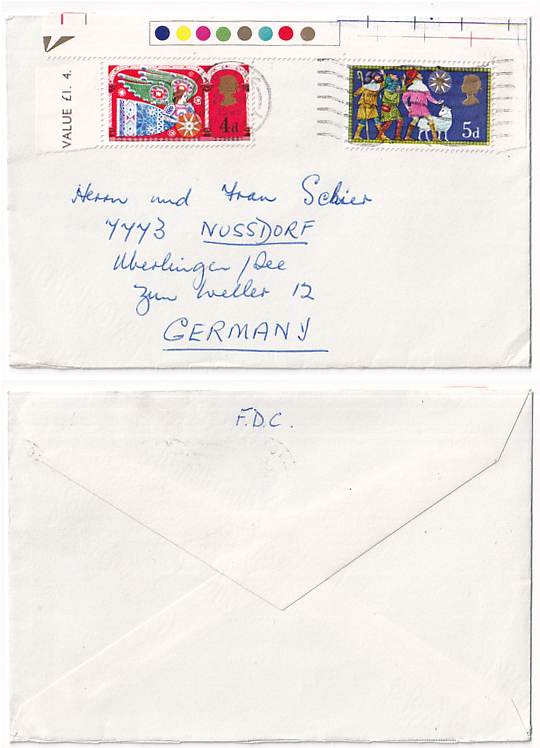 VALUE £1. 4.
4d
5d
Herrn und Frau Schier
7773 NUSSDORF
Uberlingen/See
Zum Weller 12
GERMANY
F.D.C.